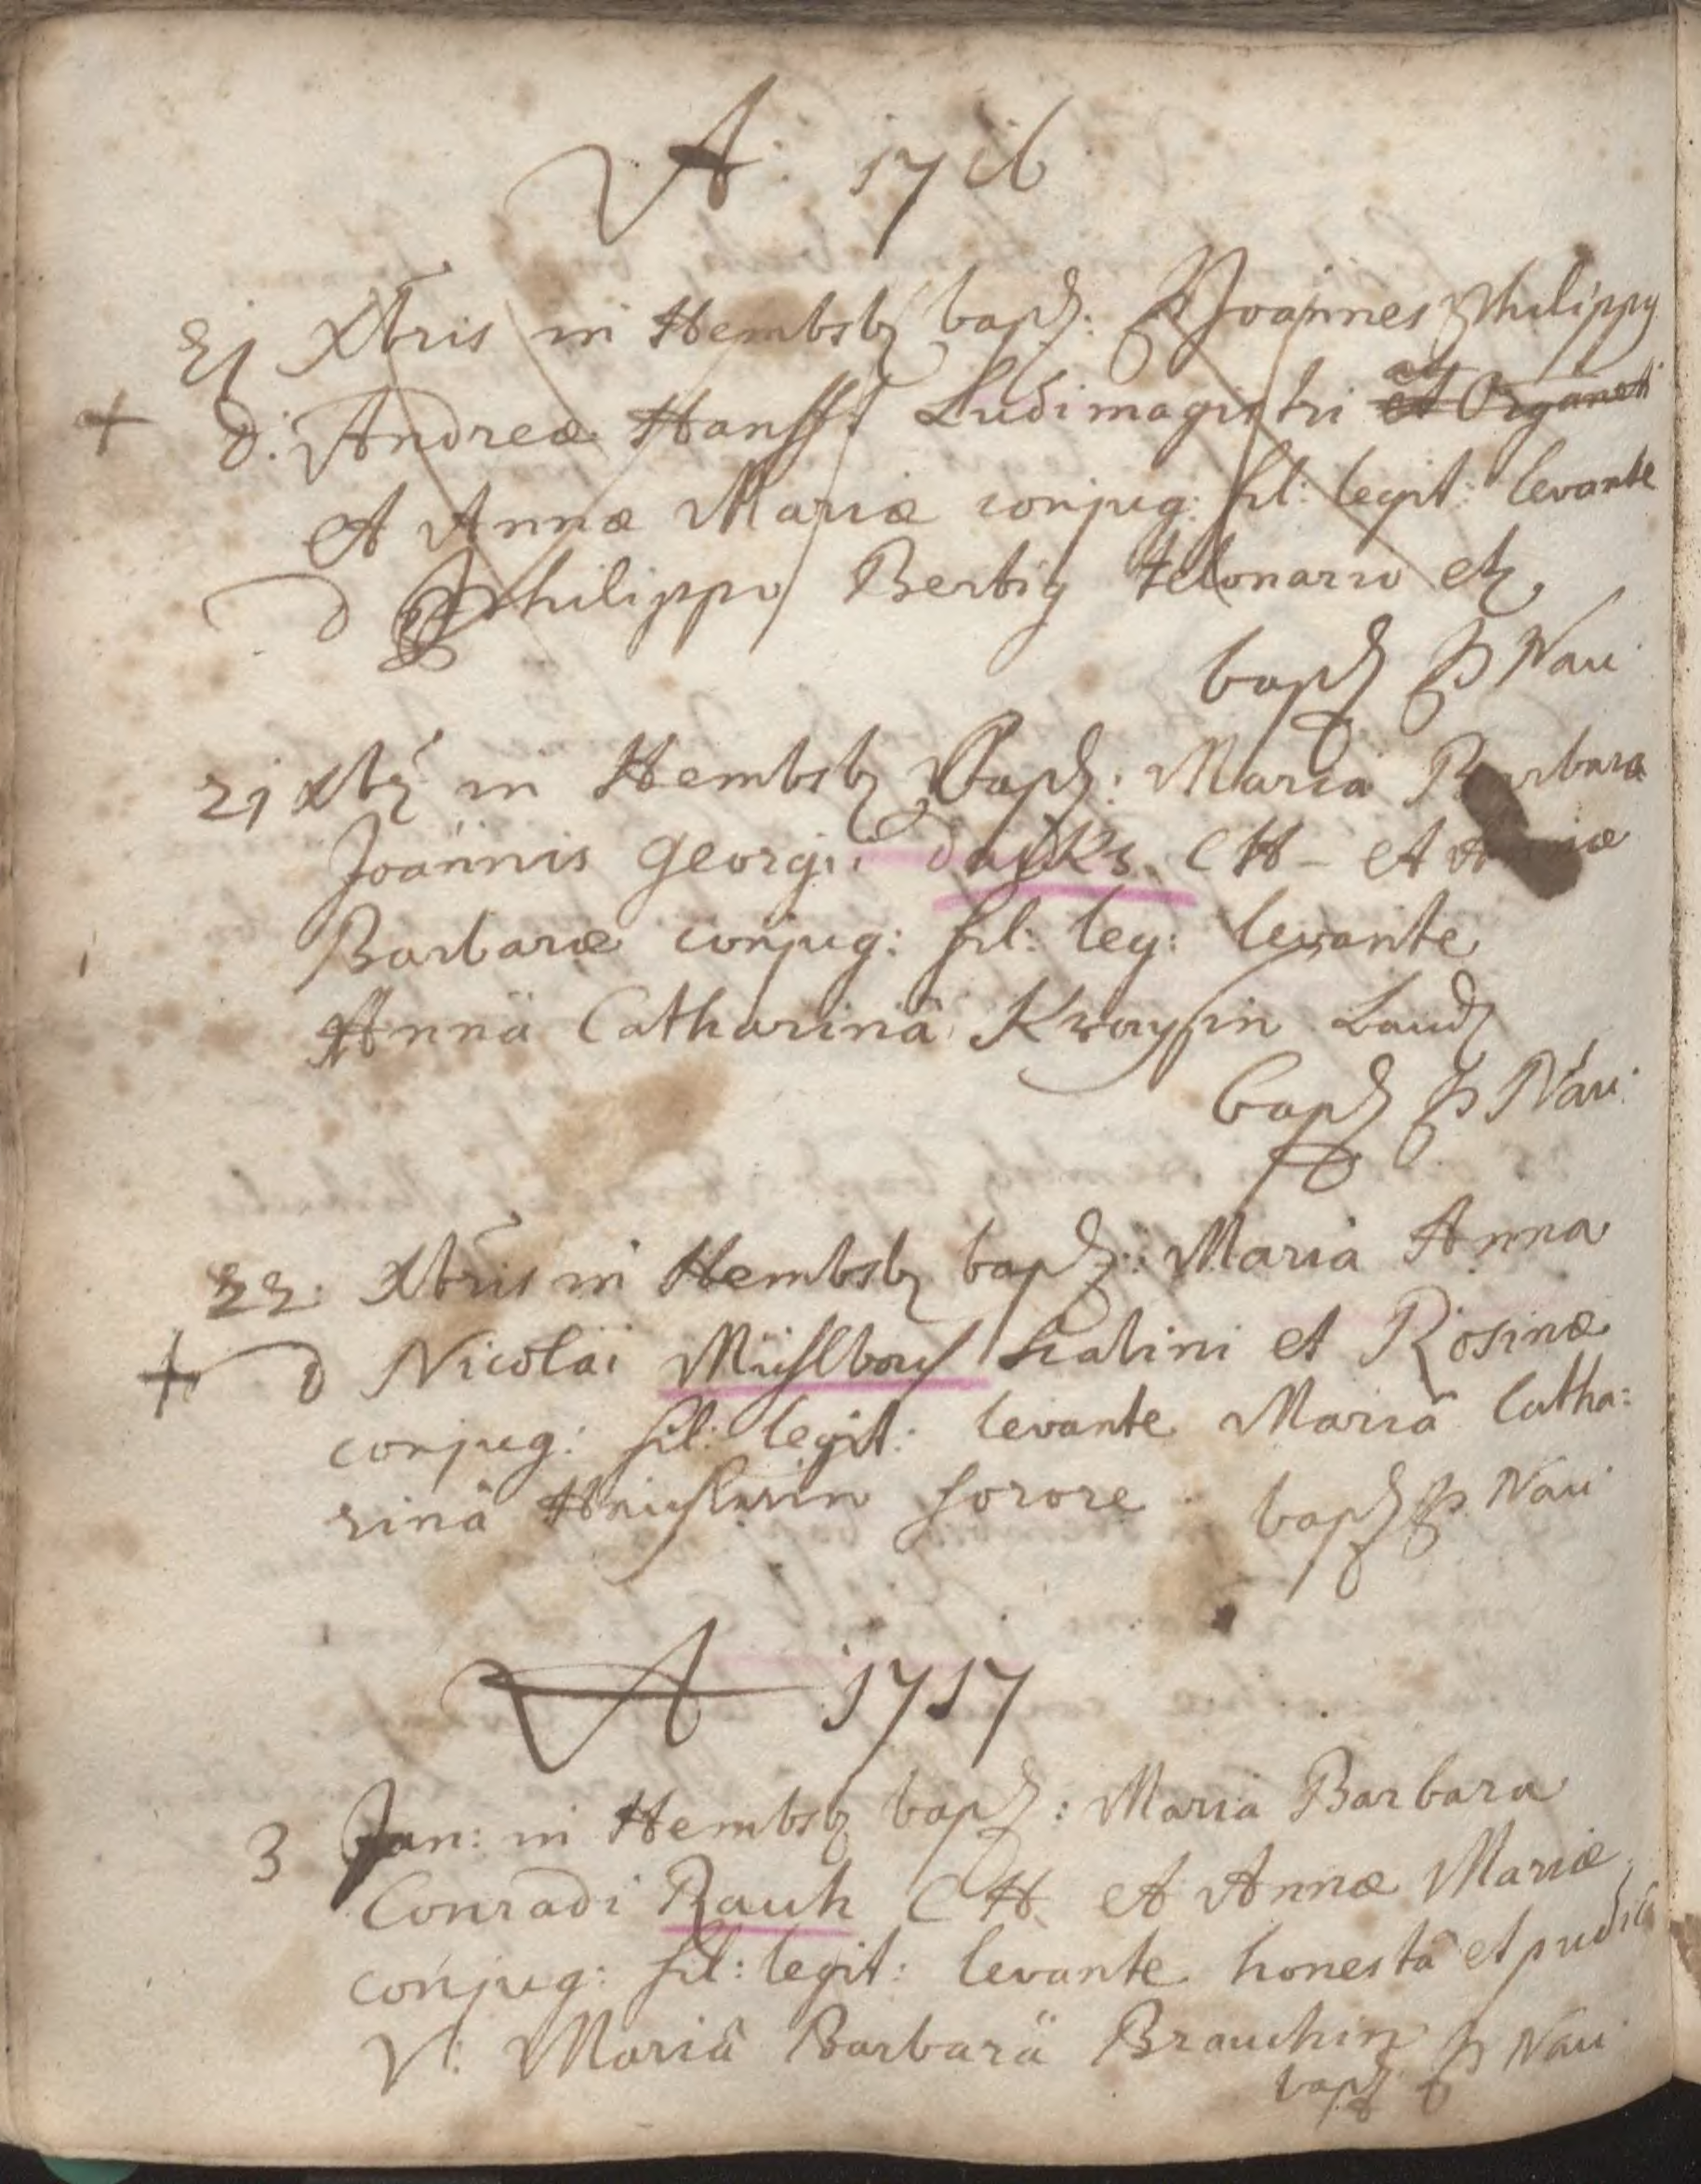 A: 1716
21 Xbris in Hembsb bapt: Joannes Philippg
+ d: Andreæ Hanfft Ludimagistri et Organ
et Annæ Mariæ conjug: fil: legit: levante
d Philippo Berbig telonario etc
bapt P Navi
21 Xbr in Hembsb Bapt: Maria Barbara
Joannis Georgii CH - et
Barbaræ conjug: fil: leg: levante
Annä Catharinâ
bapt P Navi
22 Xbris in Hembsb bapt: Maria Anna
+ d Nicolai Mühlbach scabini et Rosinæ
conjug: fil: legit: levante Mariâ Catha:
rinâ sorore bapt P Navi
A 1717
3 Jan: in Hembsb bapt: Maria Barbara
Conradi Rauh CH et Annæ Mariæ
conjug: fil: legit: levante honestâ et pudica
V: Mariâ Barbarä Brauchin P Navi
bapt